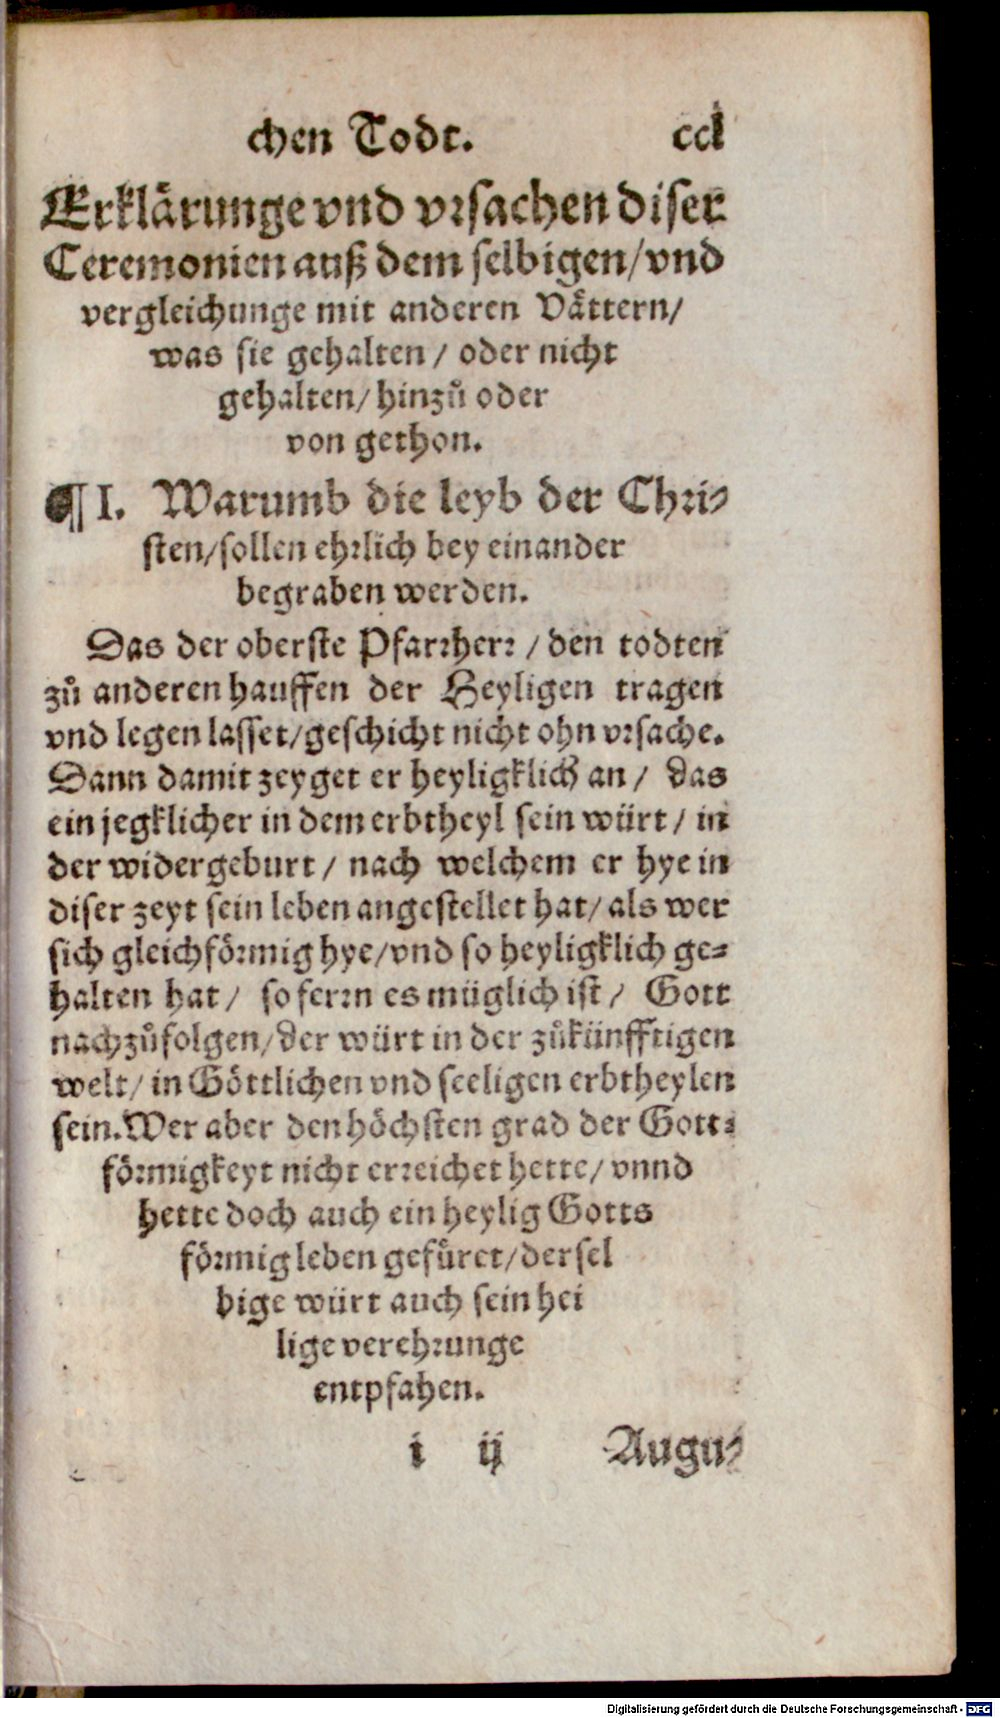 chen Todt. ccl
Erklårunge vnd vrsachen diser
Ceremonien auß dem selbigen/vnd
vergleichunge mit anderen Våttern/
was sie gehalten / oder nicht
gehalten/ hinzů oder
von gethon.
¶ I. Warumb die leyb der Chri-
sten/sollen ehrlich bey einander
begraben werden.
Das der oberste Pfarrherr / den todten
zů anderen hauffen der Heyligen tragen
vnd legen lasset/geschicht nicht ohn vrsache.
Dann damit zeyget er heyligklich an / das
ein jegklicher in dem erbtheyl sein würt / in
der widergeburt / nach welchem er hye in
diser zeyt sein leben angestellet hat/ als wer
sich gleichförmig hye/vnd so heyligklich ge-
halten hat / so ferrn es müglich ist / Gott
nachzůfolgen/der würt in der zůkünfftigen
welt/ in Göttlichen vnd seeligen erbtheylen
sein. Wer aber den höchsten grad der Gott-
förmigkeyt nicht erreichet hette/ vnnd
hette doch auch ein heylig Gotts
förmig leben gefüret/der sel
bige würt auch sein hei
lige verehrunge
entpfahen.
i ij Augu-
Digitalisierung gefördert durch die Deutsche Forschungsgemeinschaft - DFG